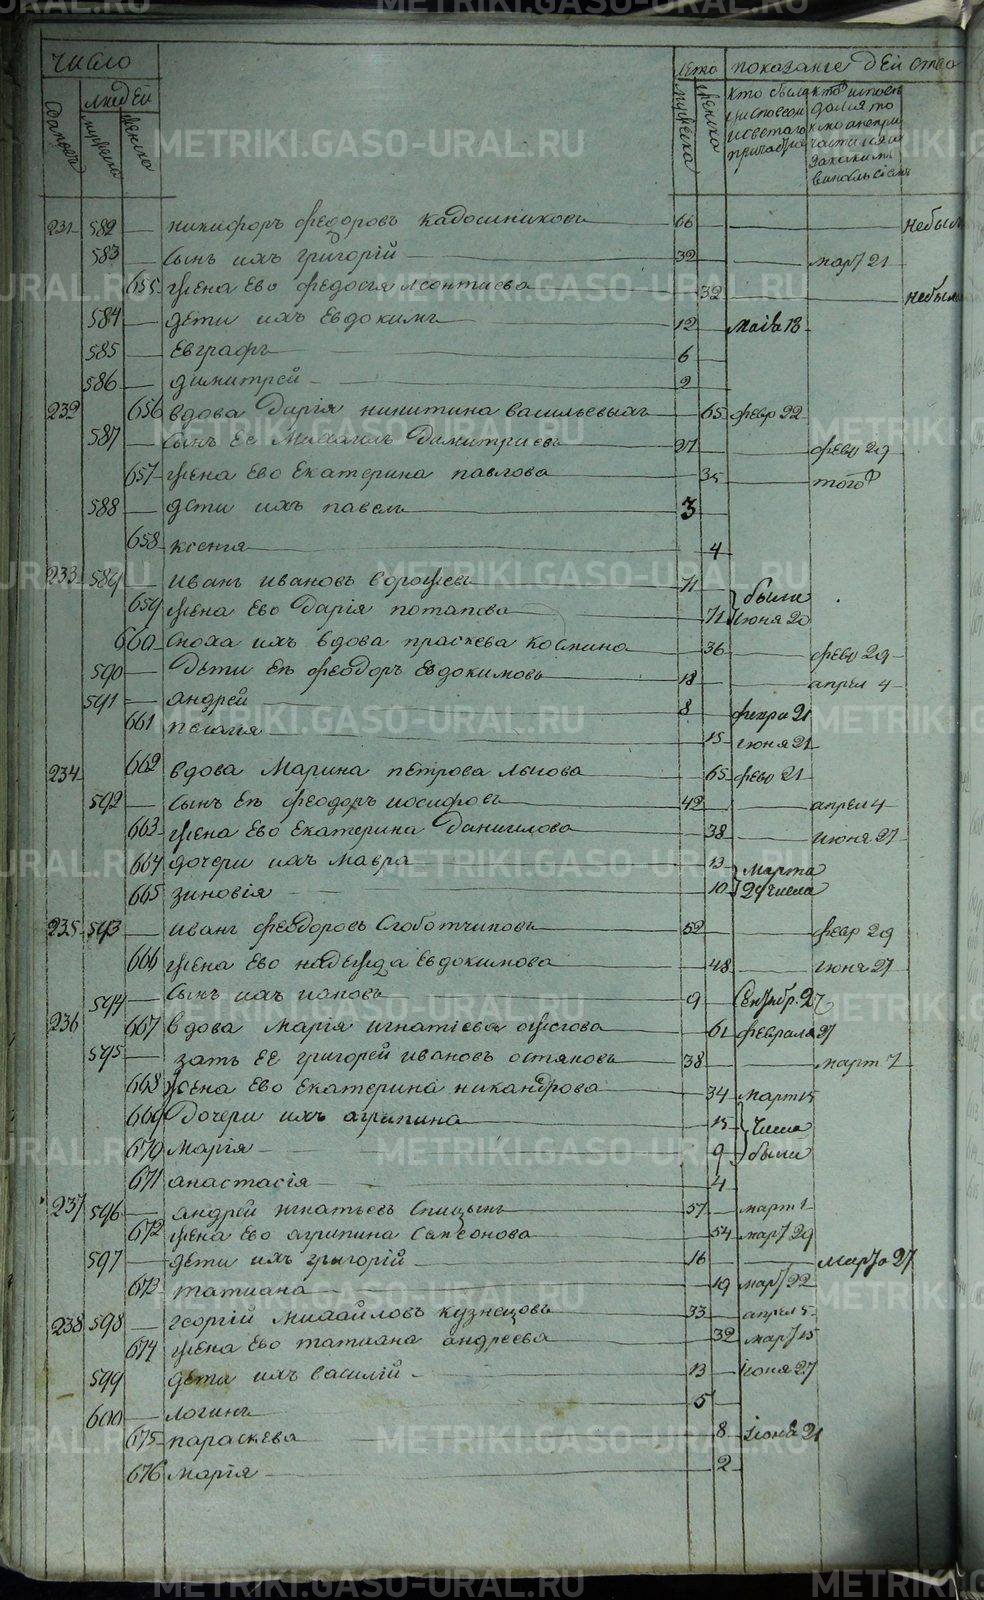 число
лета показание действа
людей
мужеска женска
мужеска женска
231 582 никифоръ федоровъ кадошниковъ 66 небылъ
583 сынъ ихъ григорій 32 мар 21
655 жена Ево федосія леонтиева 32 небыла
584 дети ихъ Евдокимъ 12 маія 18
585 Евграфъ 6
586 димитрей 2
232 656 вдова Дарія никитина васильевыхъ 65 февр 22
587 сынъ Ее Михаилъ Димитриевъ 27 февр 29
657 жена Ево Екатерина павлова 35 того
588 дети ихъ павелъ 3
658 ксенія 4
233 589 иванъ ивановъ 71 были
659 жена Ево Дарія потапова 71 іюня 20
660 сноха ихъ вдова праскева 36 февр 29
590 Дети Еѣ феодоръ Евдокимовъ 18 апрел 4
591 андрей 8 21
661 пелагія 15 іюня 21
234 662 вдова Марина петрова 65 февр 21
592 сынъ Еѣ феодоръ иосифовъ 42 апрел 4
663 жена Ево Екатерина Данилова 38 іюня 27
664 дочери ихъ мавра 13 марта
665 зиновія 10 29 числа
235 593 иванъ феодоровъ Слоботчиковъ 52 февр 29
666 жена Ево надежда Евдокимова 48 іюня 27
594 сынъ ихъ 9 Сентябр. 27
236 667 вдова марія игнатіева 61 февраля 27
595 зать ЕЕ григорей ивановъ 38 март 7
668 жена Ево Екатерина никандрова 34 март 15
669 Дочери ихъ агрипина 15 числа
670 марія 9 были
671 анастасія 4
237 596 андрей игнатьевъ Спицынъ 57 март 1
672 жена Ево агрипина Самсонова 54 мар 29
597 дети ихъ григорій 16 марта 27
673 татиана 19 мар 22
238 598 георгій михайловъ кузнецовъ 33 апрел 5
674 жена Ево татиана андреева 32 мар 15
599 дети ихъ василій 13 іюня 27
600 логинъ 5
675 параскева 8 іюня 21
676 марія 2
METRIKI.GASO-URAL.RU